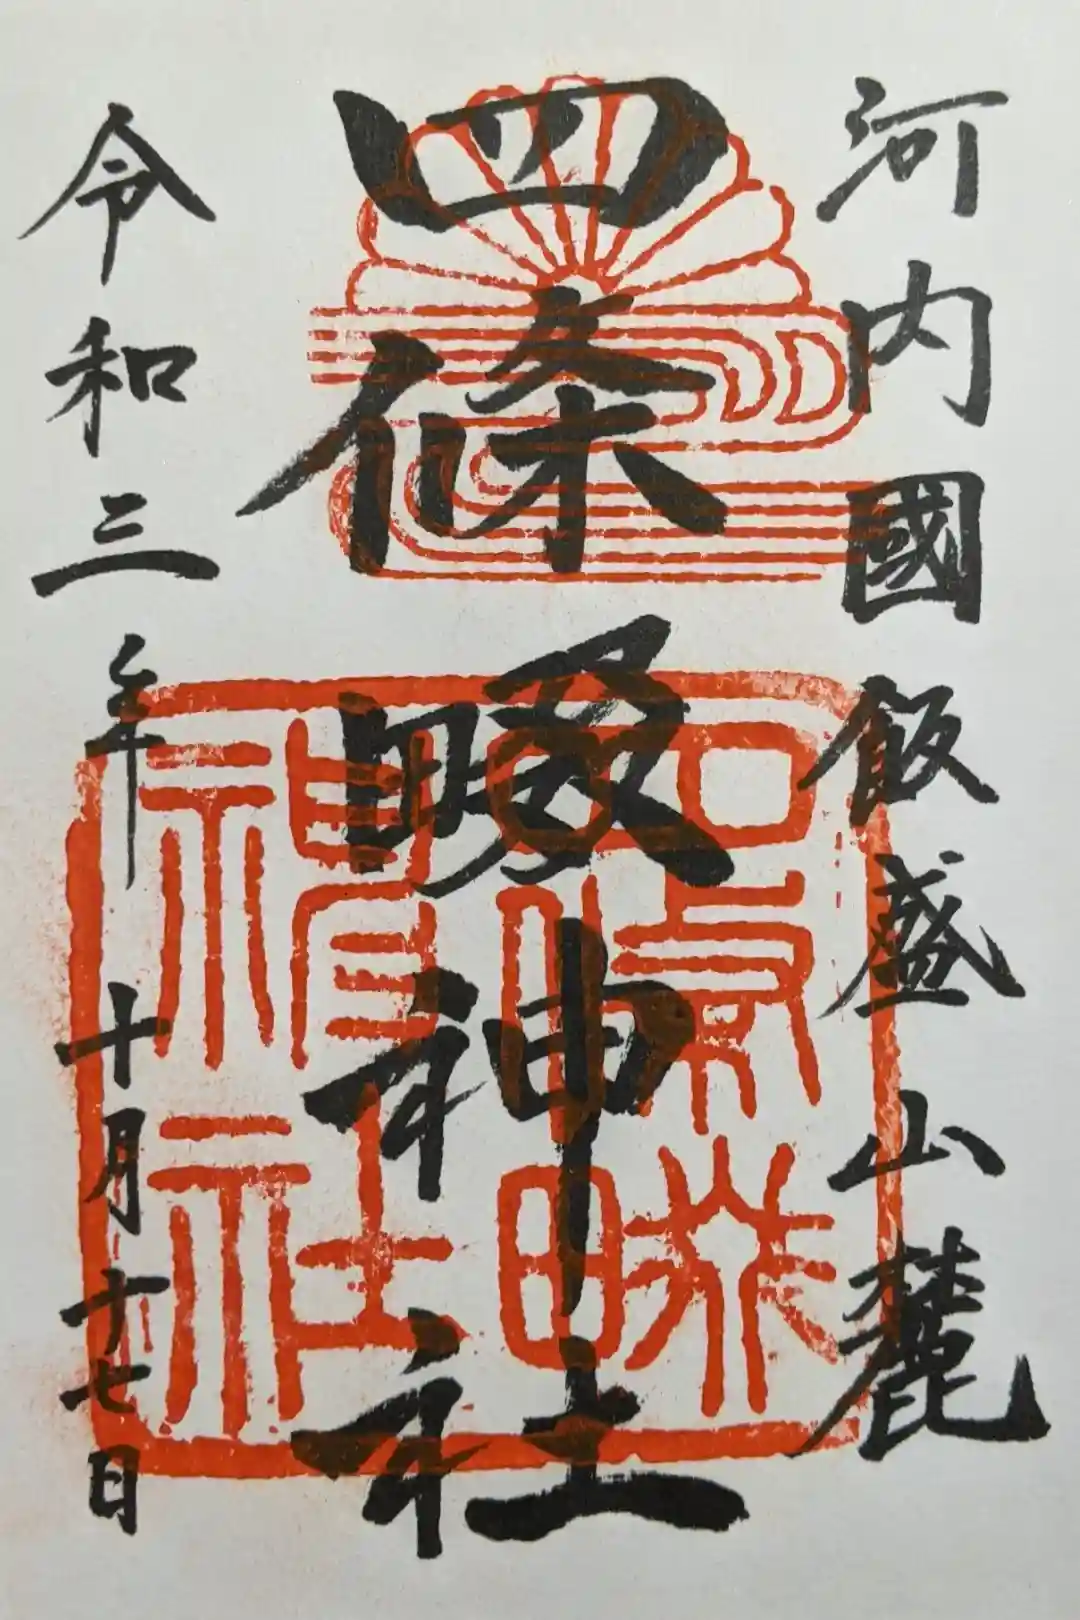 河内國飯盛山麓
四條畷神社
令和三年十月十七日